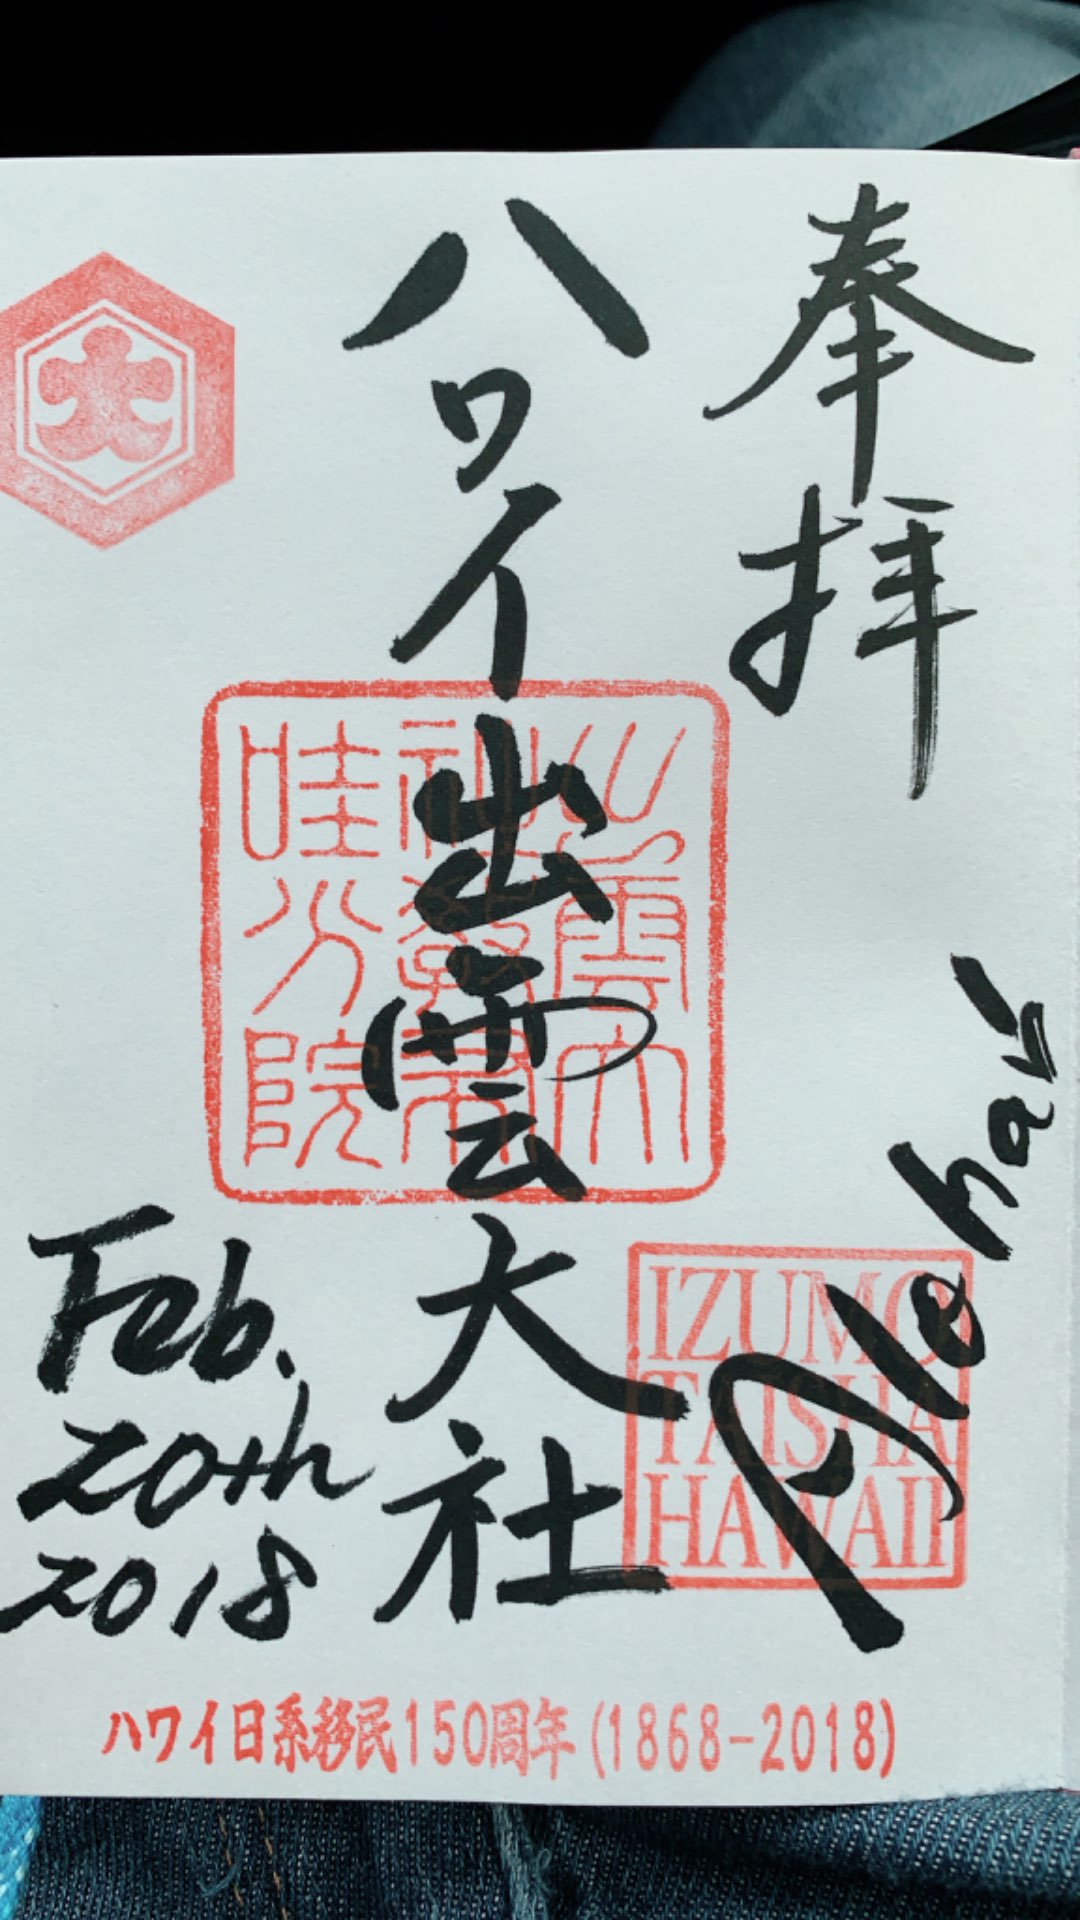 奉拝
ハワイ出雲大社
大
出雲大
社教布
哇分院
Aloha
IZUMO
TAISHA
HAWAII
Feb.
20th
2018
ハワイ日系移民150周年(1868-2018)